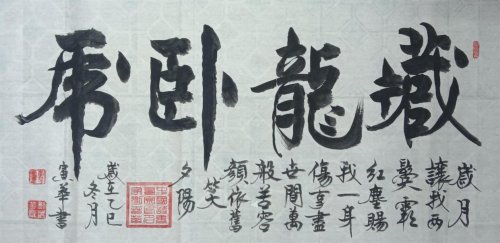 藏龍卧虎
歲月
讓我两
鬓霜
红塵賜
我一身
傷道盡
世間萬
般苦容
顔依舊
笑
夕陽
歲在乙巳
冬月
書